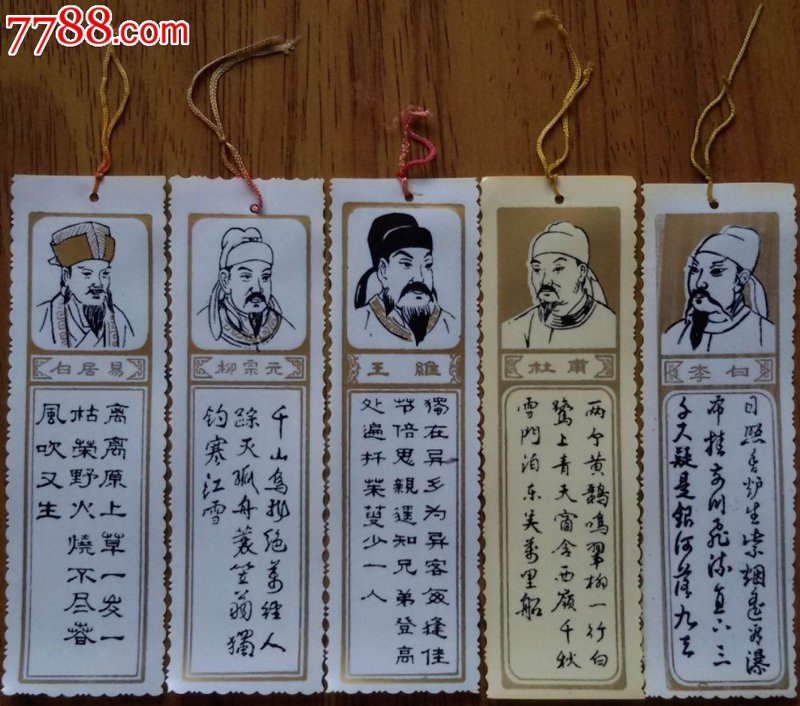 7788.com
白居易
离离原上草一岁一
枯荣野火燒不尽春
風吹又生
柳宗元
千山鸟飛绝萬径人
踪灭孤舟蓑笠翁獨
钓寒江雪
王維
獨在异乡为异客每逢佳
节倍思親遥知兄弟登高
处遍扦茱萸少一人
杜甫
两个黄鹂鸣翠柳一行白
鹭上青天窗含西嶺千秋
雪門泊东吴萬里船
李白
日照香炉生紫烟遥看瀑
布挂前川飞流直下三
千尺疑是銀河落九天